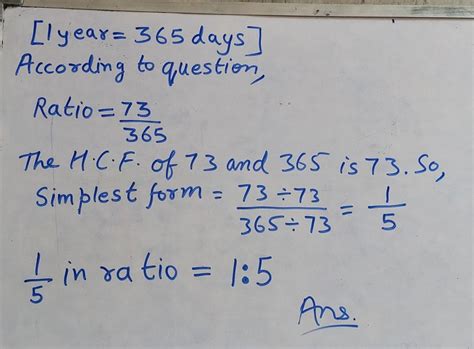 [1 year = 365 days]
According to question,
Ratio = 73/365
The H.C.F. of 73 and 365 is 73. So,
Simplest form = 73÷73/365÷73 = 1/5
1/5 in ratio = 1:5
Ans.